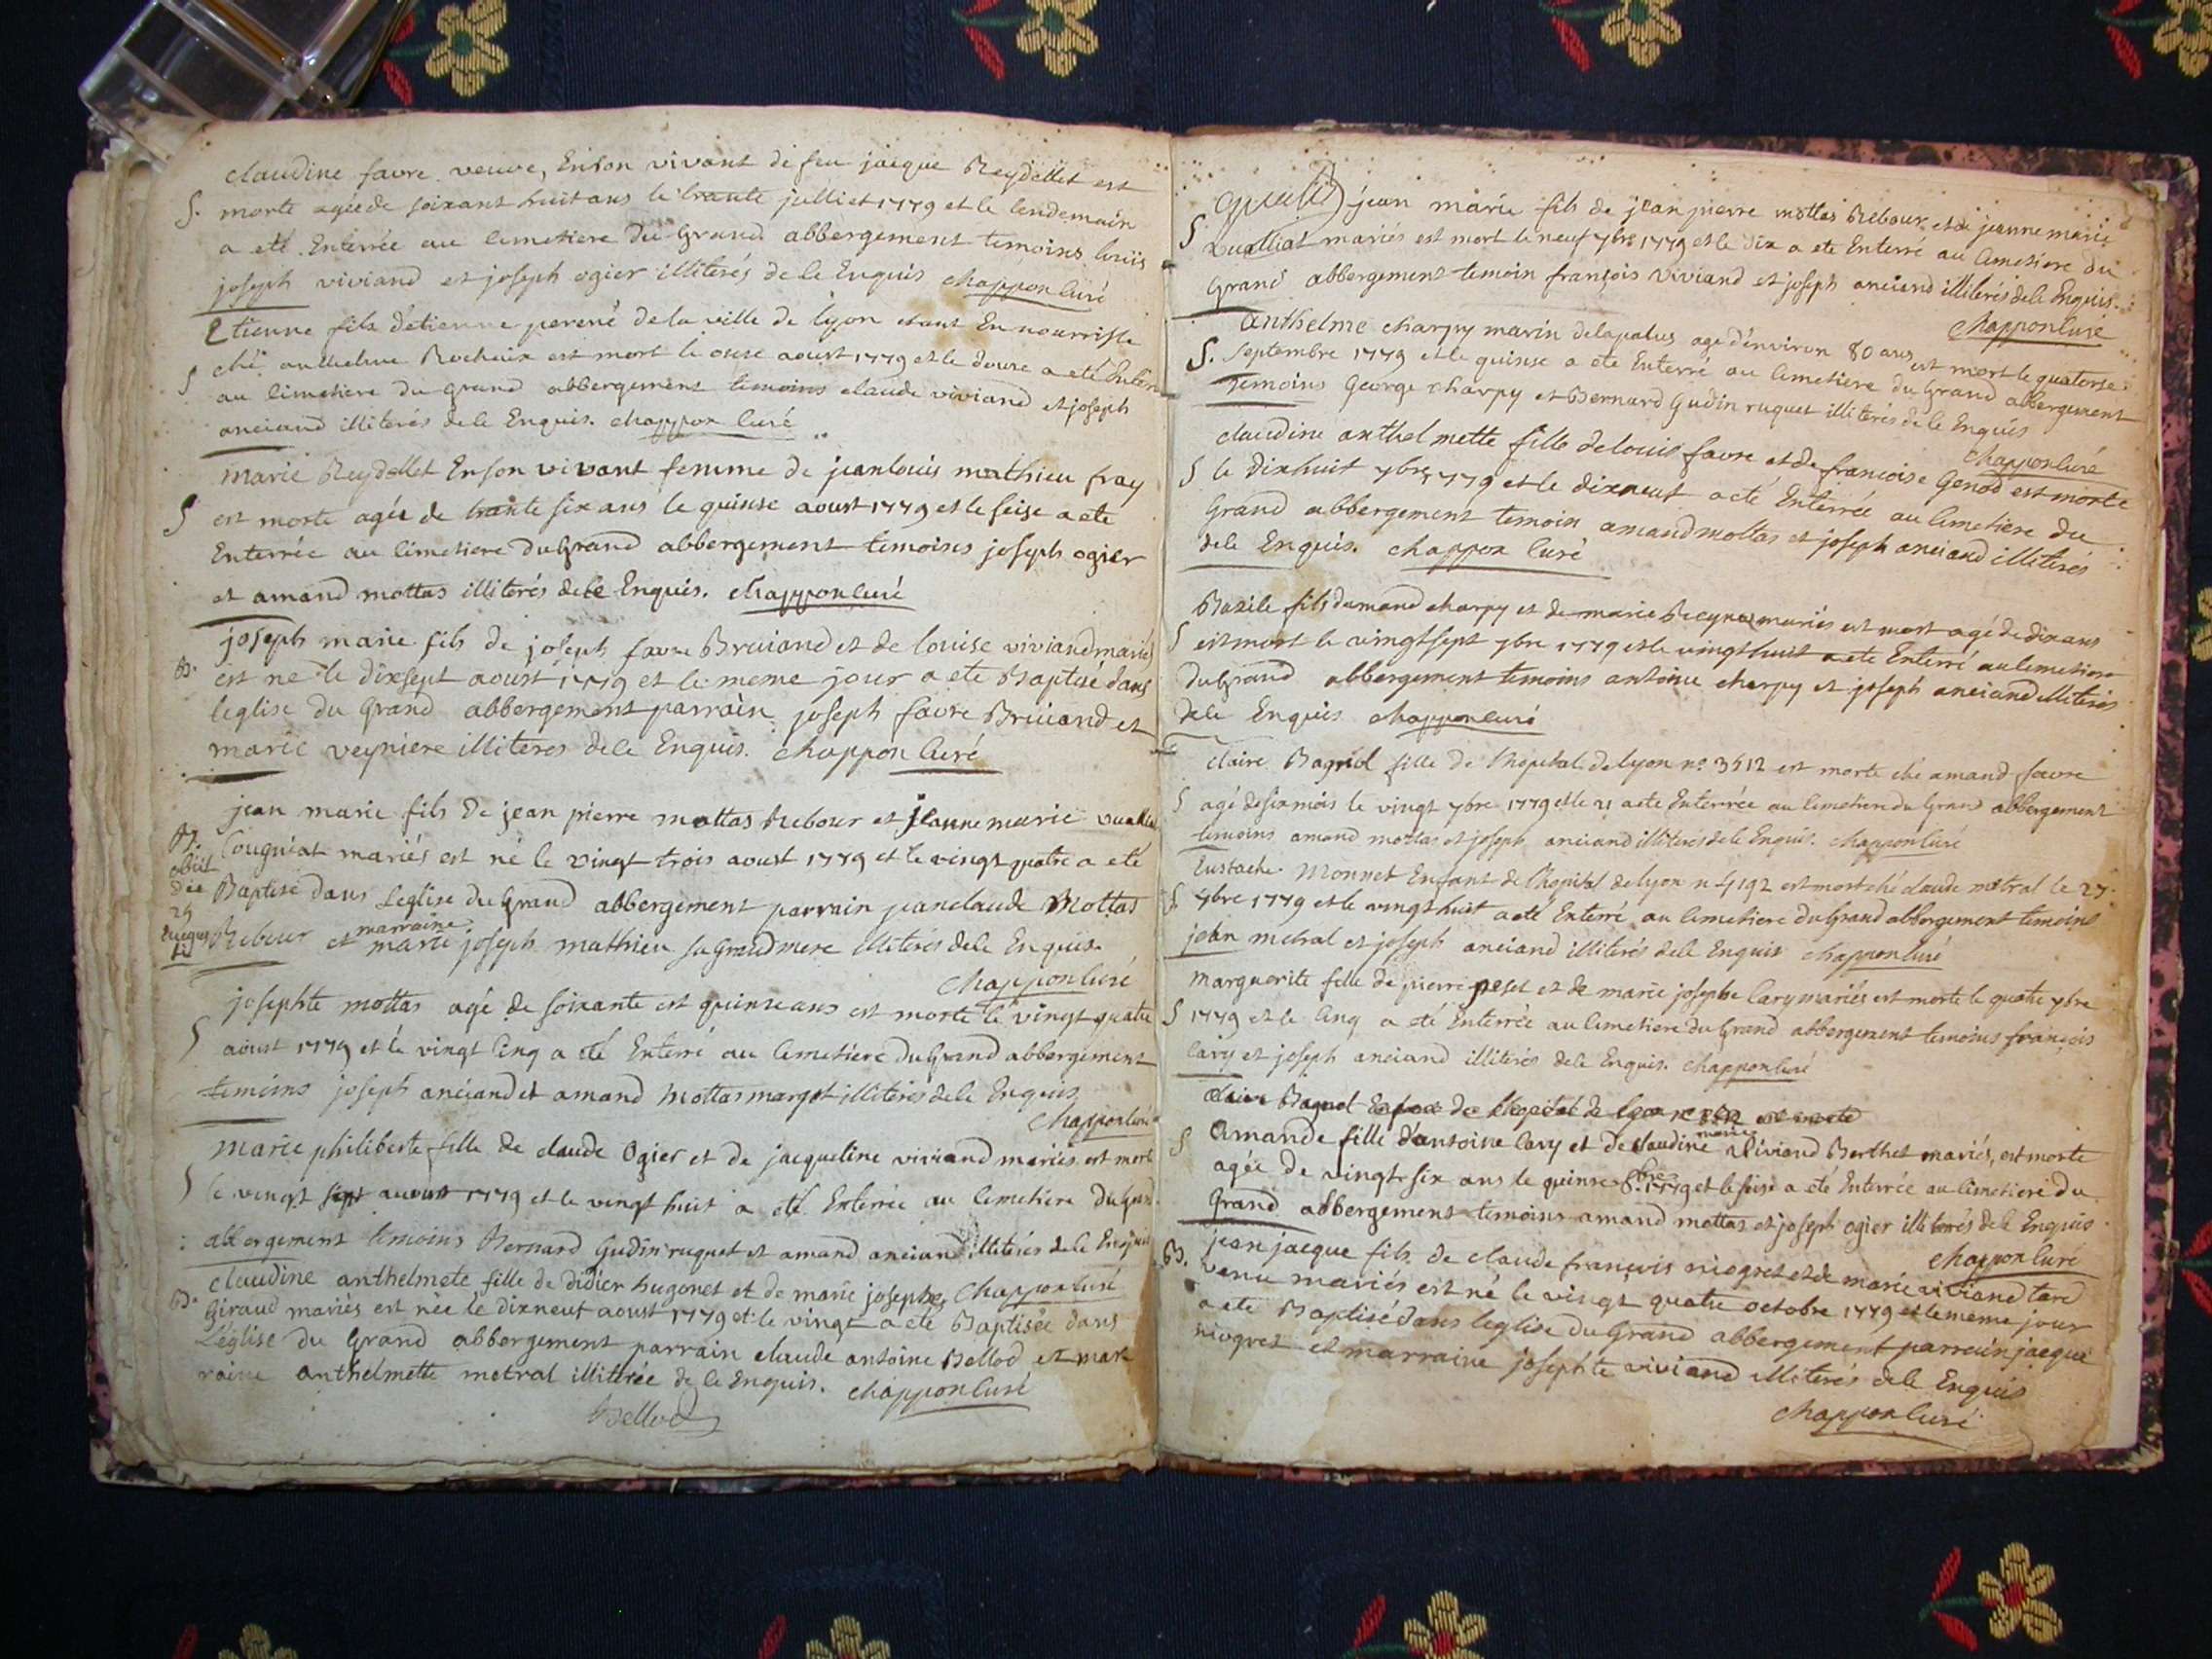 claudine favre veuve, Enson vivant de feu jacque Reydellet est
S. morte agée de soixant huit ans le trante julliet 1779 et le lendemain
a eté Enterrée au cimetiere du Grand abbergement temoins louis
joseph viviand et joseph ogier illiterés de le Enquis chappon curé
Etienne fils d'étienne perené de la ville de lyon etant En nourrisse
S ché anthelme Rochaix est mort le onse aoust 1779 et le douse a eté Enterré
au cimetiere du grand abbergement temoins claude viviand et joseph
anciand illiterés de le Enquis. chappon curé
marie Reydellet Enson vivant femme de jean louis mathieu fray
S est morte agée de trante six ans le quinse aoust 1779 et le seise a ete
Enterrée au cimetiere du Grand abbergement temoins joseph ogier
et amand mottas illiterés de le Enquis. chappon curé
joseph marie fils de joseph favre Bruiand et de louise viviand mariés
B. est né le dixsept aoust 1779 et le meme jour a ete Baptisé dans
leglise du Grand abbergement parrain joseph favre Bruiand et
marie veyniere illiteres de le Enquis. chappon curé
jean marie fils de jean pierre mottas Rebour et jeanne marie
B. Cougniat mariés est né le vingt trois aoust 1779 et le vingt quatre a eté
obiit die Baptisé dans Leglise du Grand abbergement parrain jean claude Mottas
Rebour et marraine marie joseph mathieu sa grand mere illiterés de le Enquis.
chappon curé
josephte mottas agé de soixante et quinse ans est morte le vingt quatre
S aoust 1779 et le vingt cinq a eté Enterré au cimetiere du Grand abbergement
temoins joseph anciand et amand mottas margot illiterés de le Enquis
chappon curé
marie philiberte fille de claude Ogier et de jacqueline viviand mariés est morte
S le vingt sept aoust 1779 et le vingt huit a eté Enterrée au cimetiere du Grand
abbergement temoins Bernard Gudin ruquet et amand anciand illiterés de le Enquis
claudine anthelmete fille de didier hugonet et de marie josephe chappon curé
B. Giraud mariés est née le dixneuf aoust 1779 et le vingt a eté Baptisée dans
L'église du Grand abbergement parrain claude antoine Bellod et mar
raine anthelmette metral illitérée de le Enquis. chappon curé
Bellod
jean marie fils de jean pierre mottas Rebour et de jeanne marie
S mariés est mort le neuf 7bre 1779 et le dix a ete Enterré au cimetiere du
Grand abbergement temoin françois viviand et joseph anciand illiterés de le Enquis.
chappon curé
anthelme charpy marin delapalus agé d'environ 80 ans est mort le quatorse
S. Septembre 1779 et le quinse a ete Enterré au cimetiere du Grand abbergement
temoins George charpy et Bernard Gudin ruquet illiterés de le Enquis
chappon curé
claudine anthelmette fille de louis favre et de francoise Genod est morte
S le dixhuit 7bre 1779 et le dixneuf a eté Enterrée au cimetiere du
Grand abbergement temoin amand mottas et joseph anciand illiterés
de le Enquis. chappon curé
Bazile fils damand charpy et de marie mariés est mort agé de dix ans
S est mort le vingt sept 7bre 1779 et le vingt huit a ete Enterré au cimetiere
du Grand abbergement temoins antoine charpy et joseph anciand illiterés
de le Enquis chappon curé
claire fille de l'hopital de lyon n° 3512 est morte ché amand favre
S agé de six mois le vingt 7bre 1779 et le 21 a ete Enterrée au cimetiere du Grand abbergement
temoins amand mottas et joseph anciand illiterés de le Enquis. chappon curé
Eustache Monnet Enfant de l'hopital de lyon n 4192 est mort ché claude metral le 27
S 7bre 1779 et le vingt huit a eté Enterré au cimetiere du Grand abbergement temoins
metral et joseph anciand illiterés de le Enquis chappon curé
marguerite fille de pierre peset et de marie josephe Cary mariés est morte le quatre 7bre
S 1779 et le cinq a eté Enterrée au cimetiere du Grand abbergement temoins françois
Cary et joseph anciand illiterés de le Enquis. chappon curé
de l'hopital de lyon
S Amande fille d'antoine Cary et de claudine marie viviand Berthet mariés, est morte
agée de vingt six ans le quinse 8.bre 1779 et le seise a eté Enterrée au cimetiere du
Grand abbergement temoins amand mottas et joseph ogier illiterés de le Enquis
chappon curé
B. jean jacque fils de claude francois niogret et de marie viviand tard
venu mariés est né le vingt quatre octobre 1779 et le meme jour
a ete Baptisé dans leglise du Grand abbergement parrain jacque
niogret et marraine josephte viviand illiterés de le Enquis
chappon curé